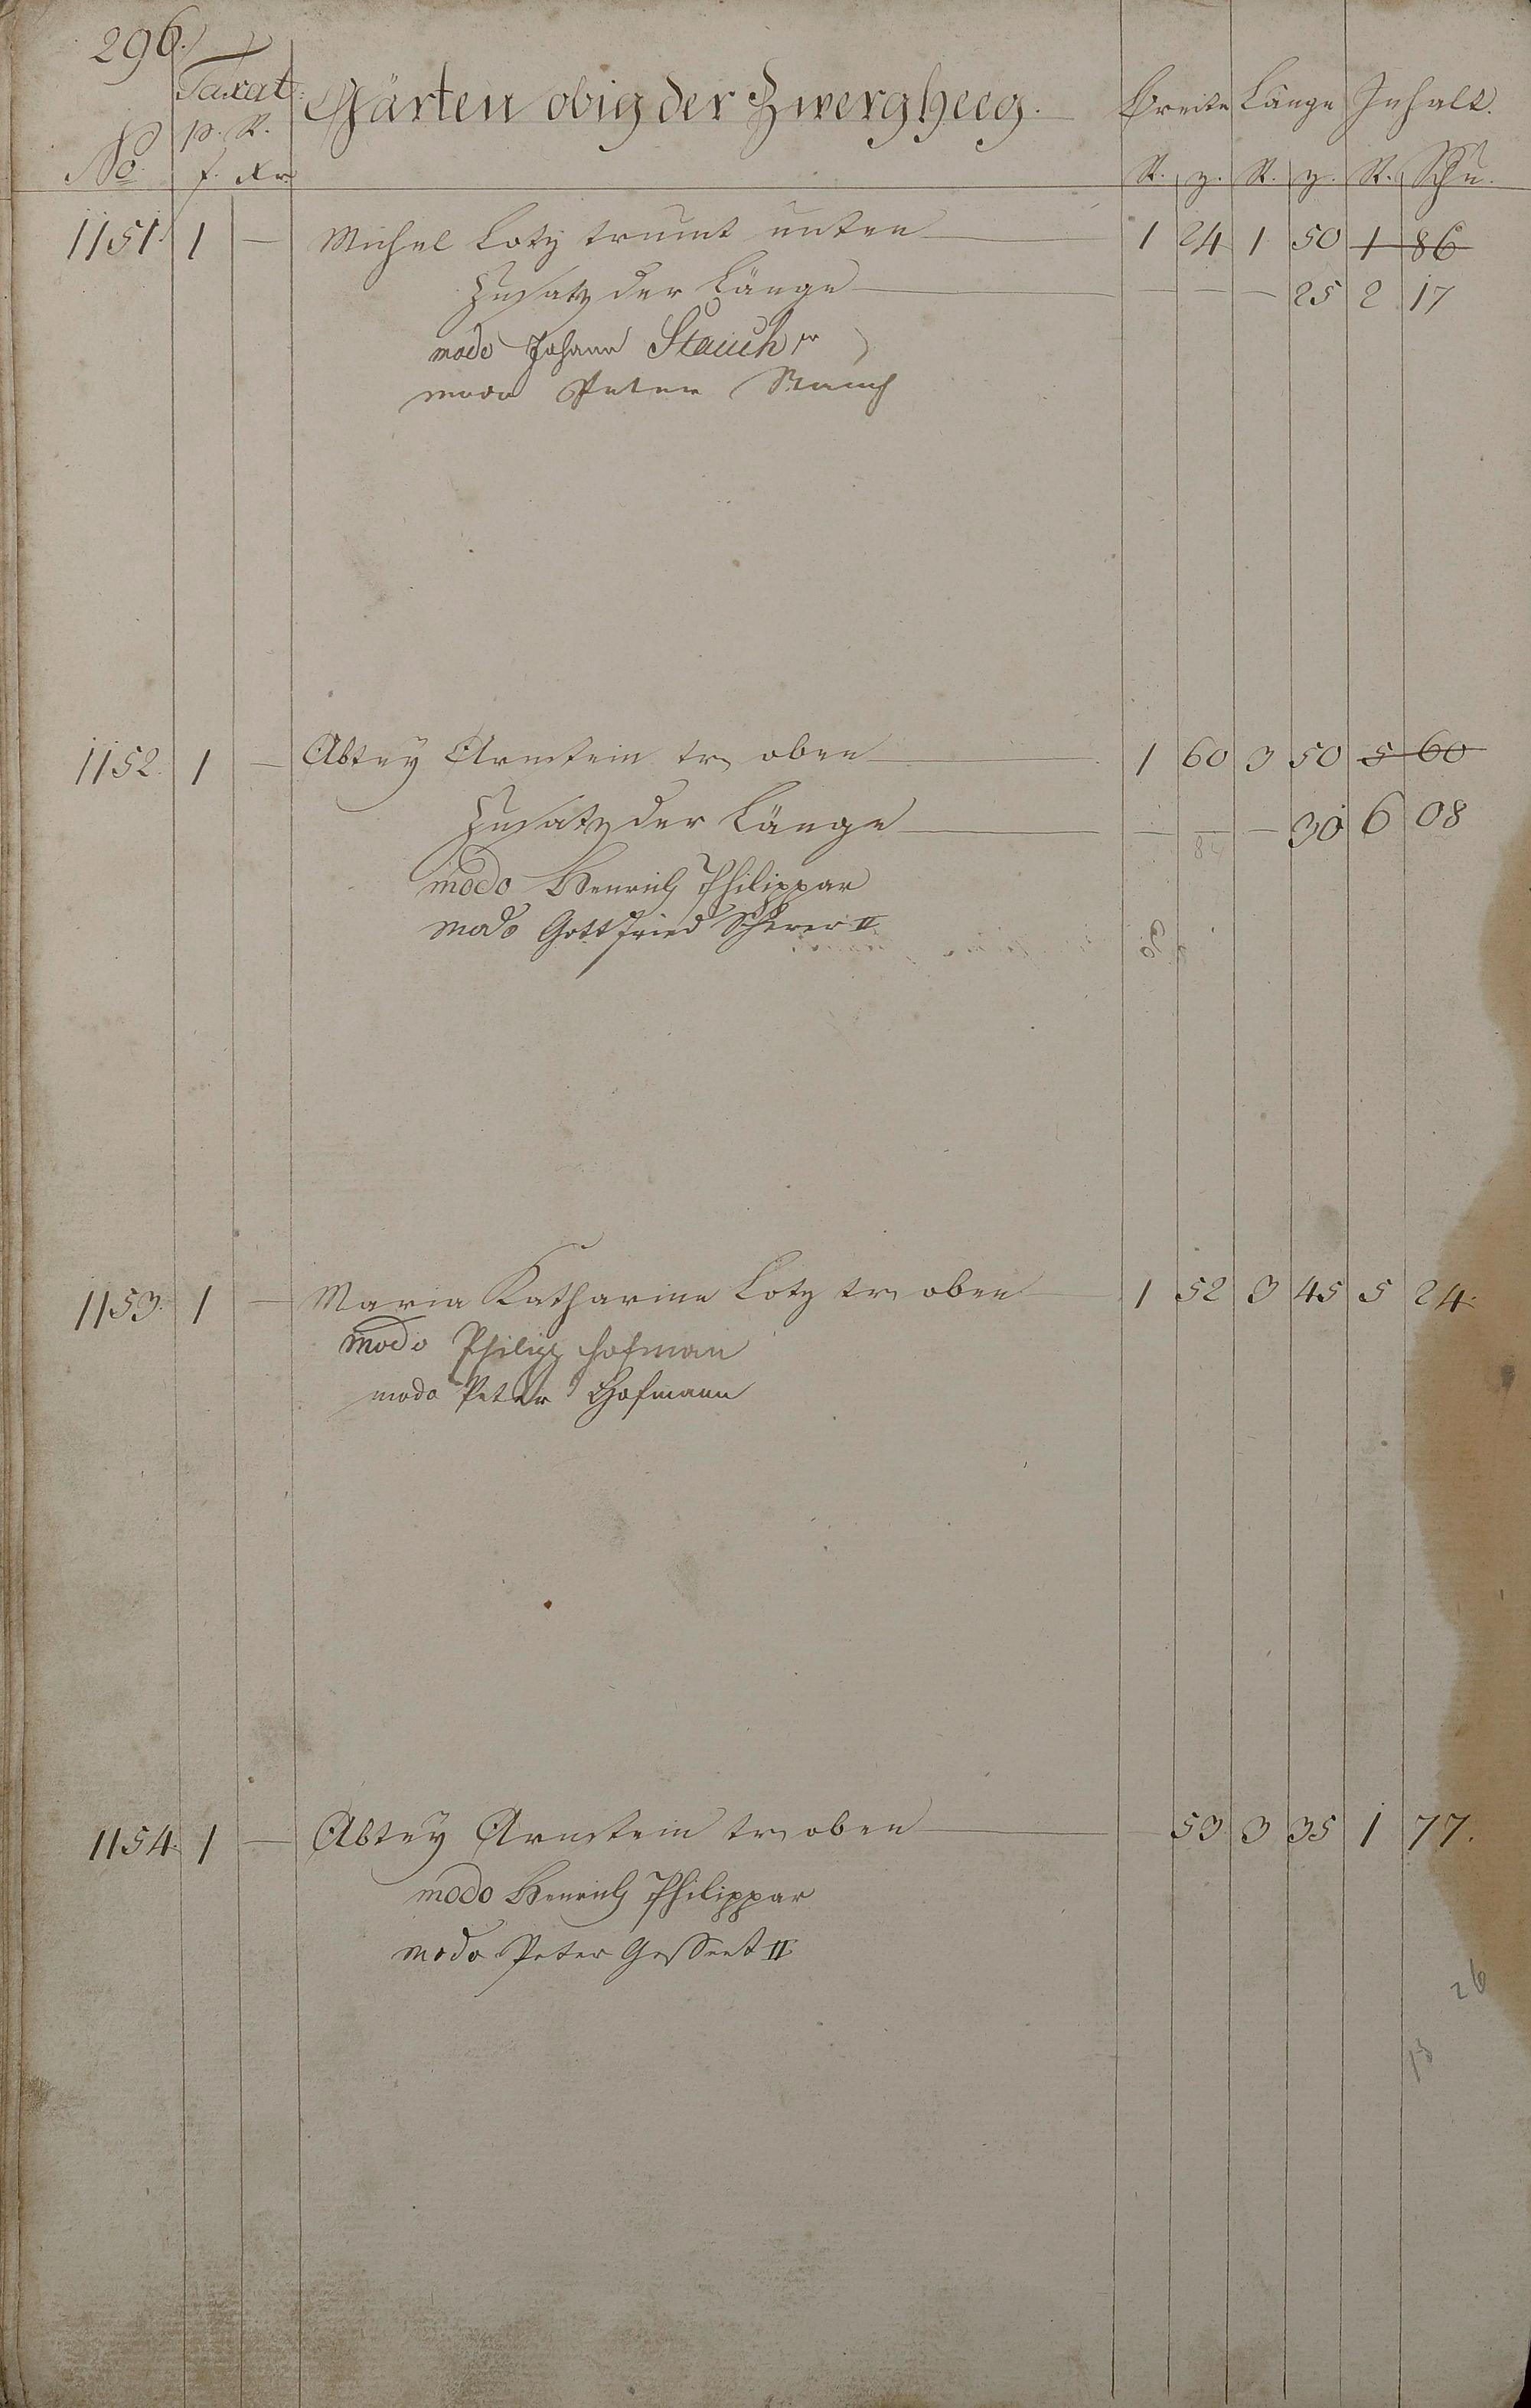 296.
Taxat: Gärten obig der Zwergheeg. Breite Länge Inhalt.
p. R.
No f. Xr R. z. R. z. R. Schu.
1151. 1 — Michel Lotz trumt unten 1 24 1 50 1 86
Zusatz der Länge — — — 25 2 17
modo Johann Stauch
modo Peter Stauch
1152. 1 — Abtey Arnstein tr. oben 1 60 3 50 5 60
Zusatz der Länge — — — 30 6 08
modo Henrich Philippar
modo Gottfried Scherer II
1153. 1 — Maria Katharina Lotz tr. oben 1 52 3 45 5 24.
modo Philipp Hofman
modo Peter Hofmann
1154. 1 — Abtey Arnstein tr. oben 53 3 35 1 77.
modo Henrich Philippar
modo Peter Gessert II
26
13